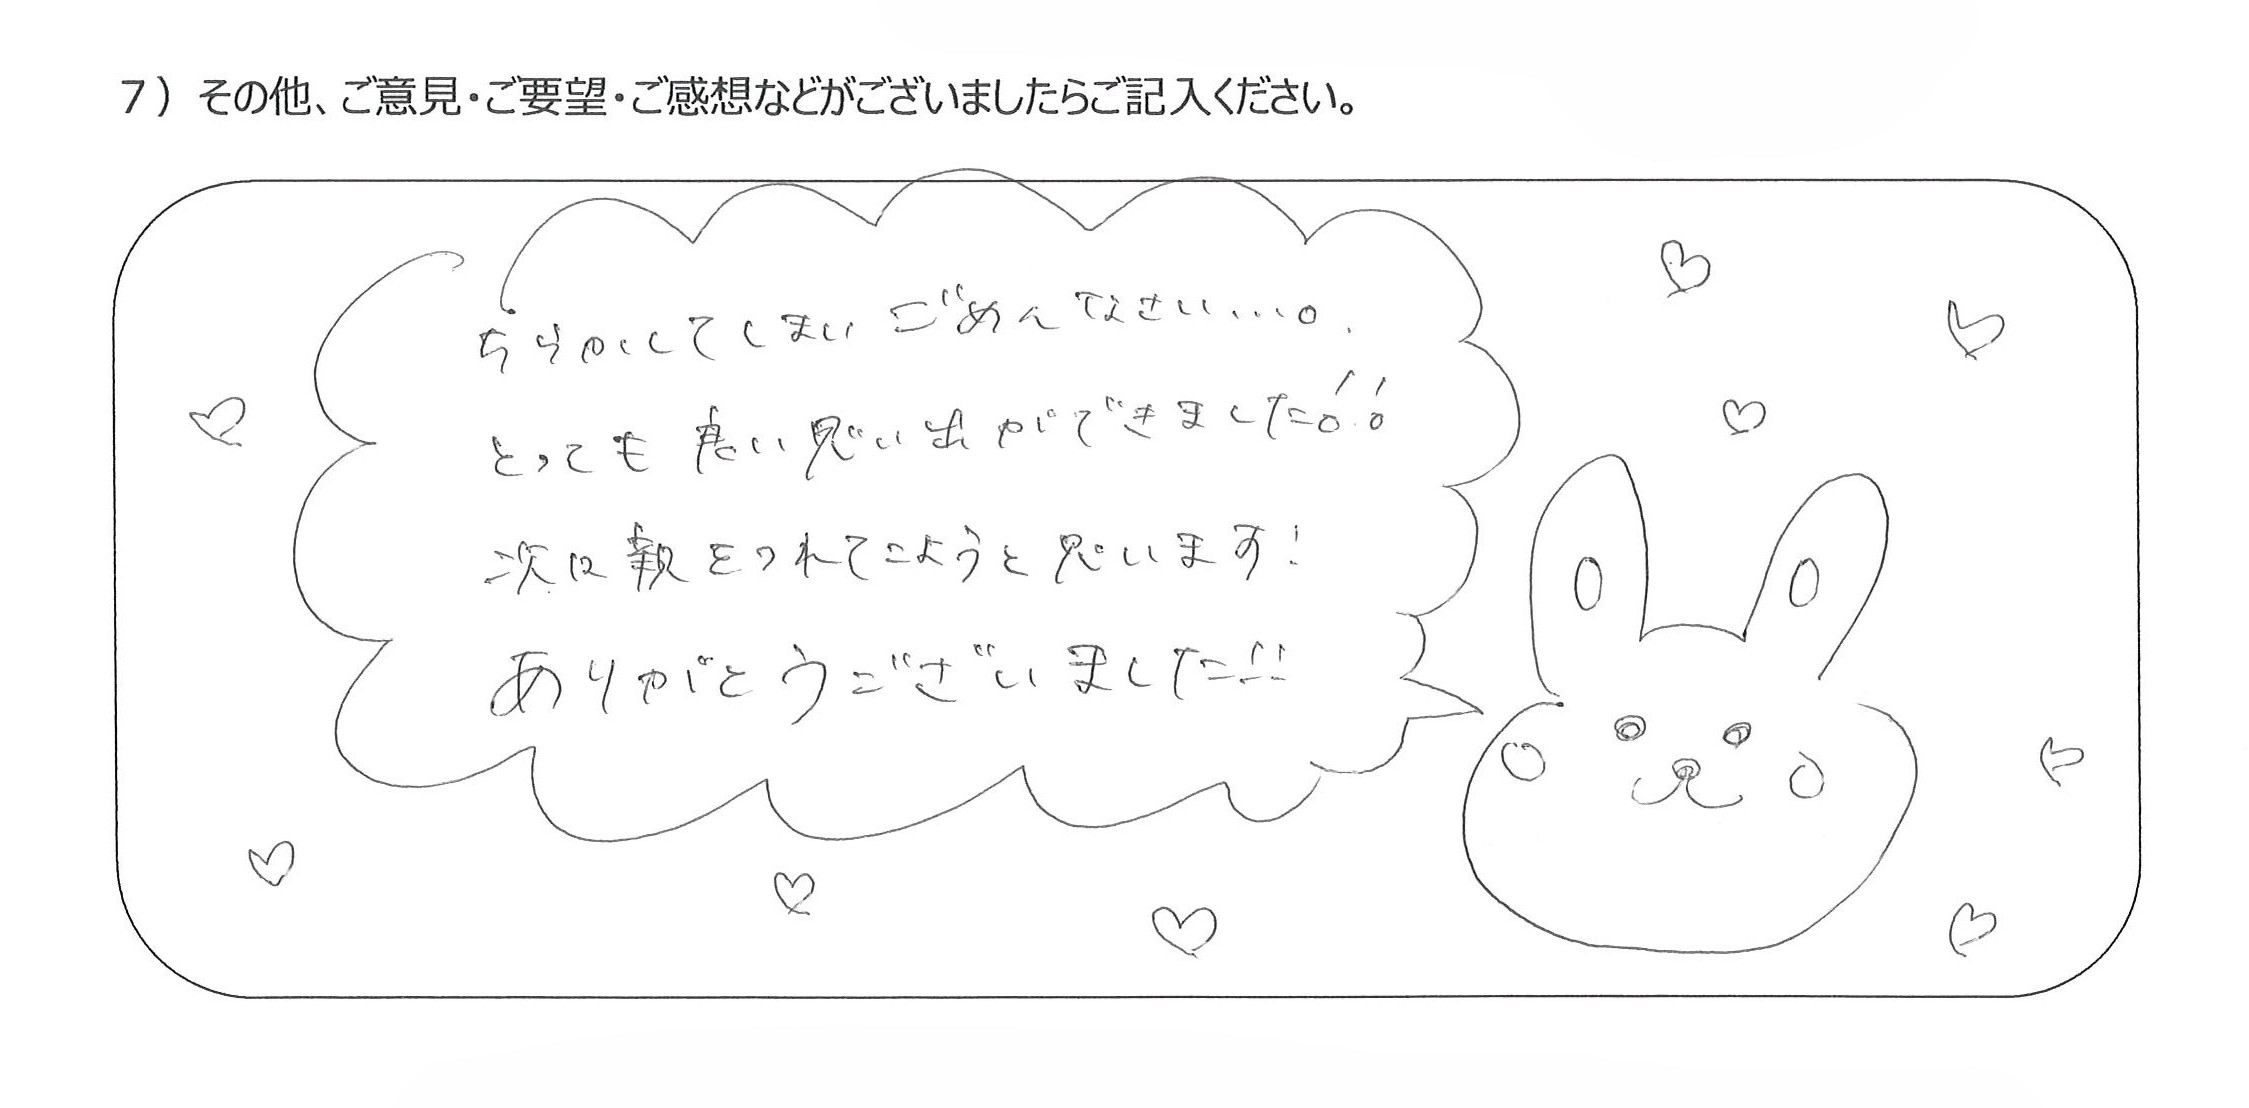 7）その他、ご意見・ご要望・ご感想などがございましたらご記入ください。
ちらかしてしまいごめんなさい...。
とっても良い思い出ができました!!
次は親をつれてこようと思います!
ありがとうございました!!